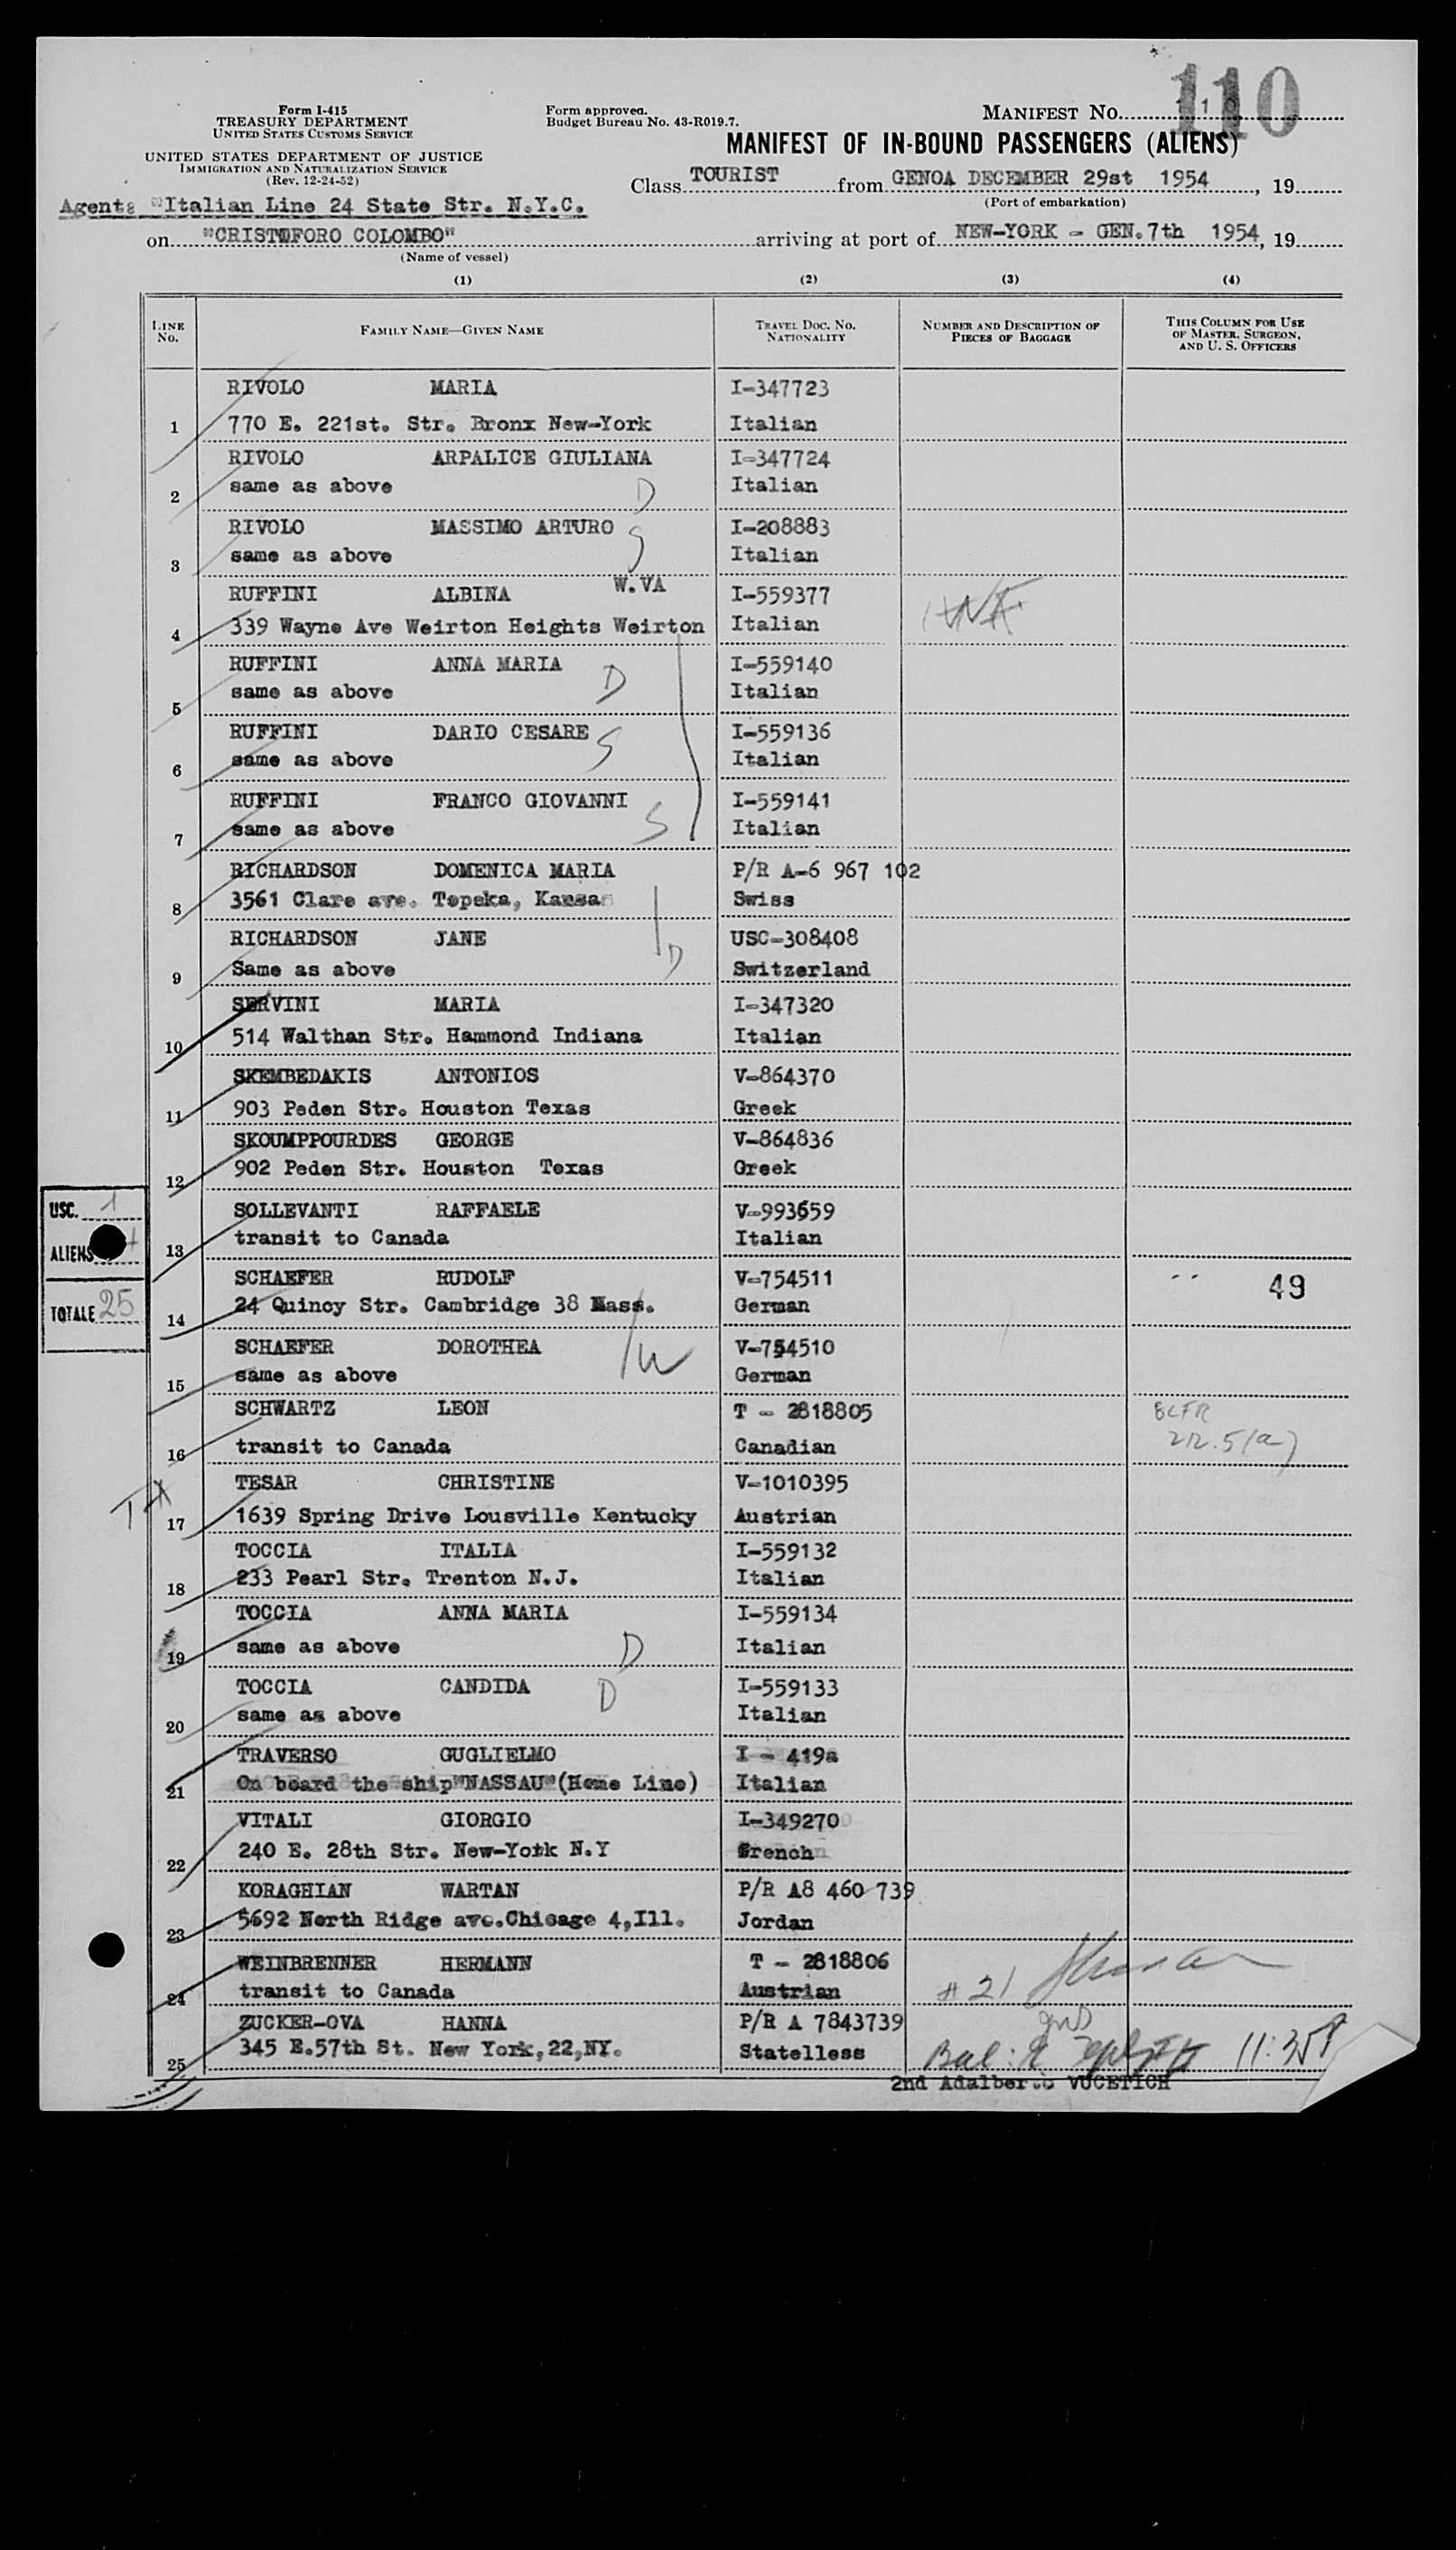 110
Form I-415
TREASURY DEPARTMENT
UNITED STATES CUSTOMS SERVICE
Form approved.
Budget Bureau No. 43-R019.7.
MANIFEST NO.
MANIFEST OF IN-BOUND PASSENGERS (ALIENS)
UNITED STATES DEPARTMENT OF JUSTICE
IMMIGRATION AND NATURALIZATION SERVICE
(Rev. 12-24-52)
Class TOURIST from GENOA DECEMBER 29st 1954, 19
(Port of embarkation)
Agent: "Italian Line 24 State Str. N.Y.C.
on "CRISTOFORO COLOMBO" arriving at port of NEW-YORK - GEN.7th 1954, 19
(Name of vessel)
(1) (2) (3) (4)
LINE NO. FAMILY NAME—GIVEN NAME TRAVEL DOC. NO. NATIONALITY NUMBER AND DESCRIPTION OF PIECES OF BAGGAGE THIS COLUMN FOR USE OF MASTER, SURGEON, AND U. S. OFFICERS
RIVOLO MARIA I-347723
1 770 E. 221st. Str. Bronx New-York Italian
RIVOLO ARPALICE GIULIANA I-347724
2 same as above D Italian
RIVOLO MASSIMO ARTURO S I-208883
3 same as above Italian
RUFFINI ALBINA W.VA I-559377
4 339 Wayne Ave Weirton Heights Weirton Italian
RUFFINI ANNA MARIA D I-559140
5 same as above Italian
RUFFINI DARIO CESARE S I-559136
6 same as above Italian
RUFFINI FRANCO GIOVANNI I-559141
7 same as above S Italian
RICHARDSON DOMENICA MARIA P/R A-6 967 102
8 3561 Clare ave. Topeka, Kansas Swiss
RICHARDSON JANE USC-308408
9 Same as above D Switzerland
SERVINI MARIA I-347320
10 514 Walthan Str. Hammond Indiana Italian
SKEMBEDAKIS ANTONIOS V-864370
11 903 Peden Str. Houston Texas Greek
SKOUMPPOURDES GEORGE V-864836
12 902 Peden Str. Houston Texas Greek
USC. 1
SOLLEVANTI RAFFAELE V-993659
13 transit to Canada Italian
ALIENS
SCHAEFER RUDOLF V-754511 49
TOTALE 25
14 24 Quincy Str. Cambridge 38 Mass. German
SCHAEFER DOROTHEA W V-754510
15 same as above German
SCHWARTZ LEON T - 2818805 8CFR
16 transit to Canada Canadian 212.5(a)
TESAR CHRISTINE V-1010395
17 1639 Spring Drive Lousville Kentucky Austrian
TOCCIA ITALIA I-559132
18 233 Pearl Str. Trenton N.J. Italian
TOCCIA ANNA MARIA I-559134
19 same as above D Italian
TOCCIA CANDIDA D I-559133
20 same as above Italian
TRAVERSO GUGLIELMO I - 419a
21 On board the ship"NASSAU"(Home Line) Italian
VITALI GIORGIO I-349270
22 240 E. 28th Str. New-York N.Y French
KORAGHIAN WARTAN P/R A8 460 739
23 5692 North Ridge ave.Chicago 4,Ill. Jordan
WEINBRENNER HERMANN T - 2818806
24 transit to Canada Austrian # 21
ZUCKER-OVA HANNA P/R A 7843739
25 345 E.57th St. New York,22,NY. Statelless 11:35P
2nd Adalberto VUCETICH